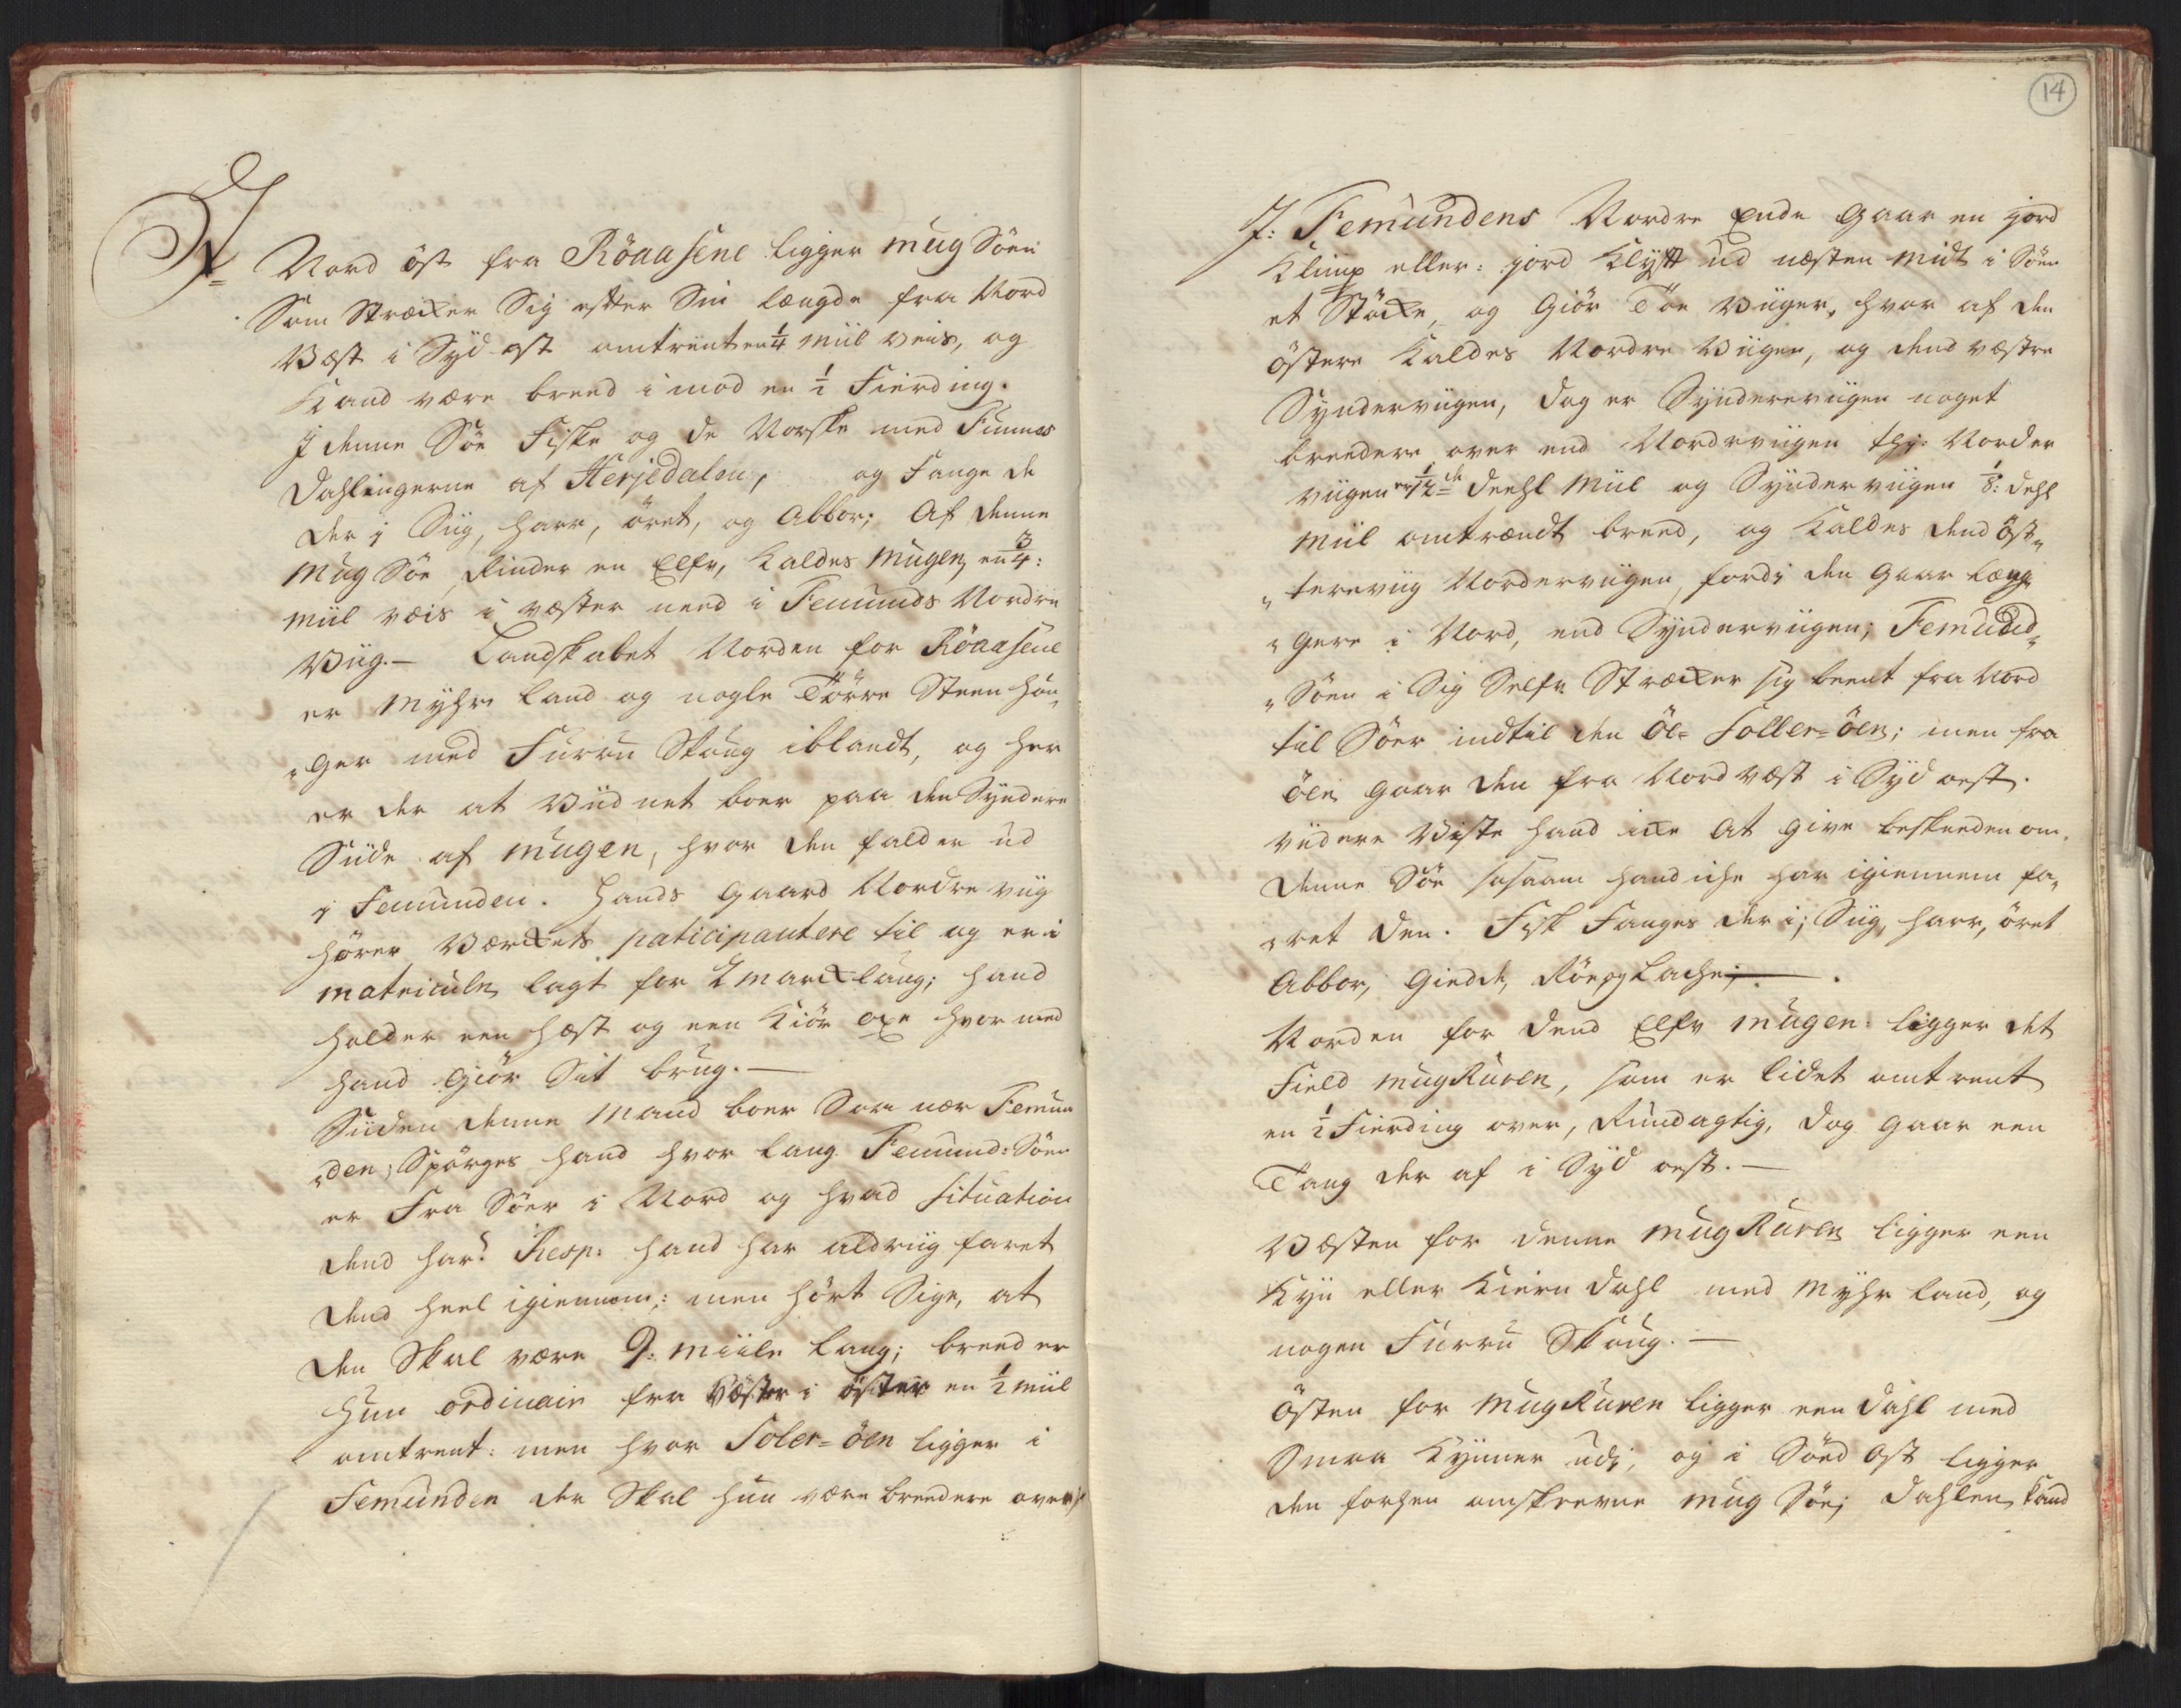 I
Nord öst fra Röaasene ligger Mug Söen
Som Strecker Sig efter Sin længde fra Nord
Vest i Syd-ost omtrint en 1/4 Miil veis, og
Kand være breed imod en 1/2 Fierding.
J denne Söe Fiske og de Norske med Funnes
Dahlingerne af Herjedalen, og Fange de
der i Siig, harr, öret, og Abbor; Af denne
Mug Söe, Rinder en Elfv, kaldes Mugen, en 3/4:
Miil veis i vester need i Femunds Nordre
Viig.— Landskabet Norden for Röaasene
er Myhr land og nogle Törre Steen hau„
„ger med Furru Skoug iblandt, og her
er der at Viidnet boer paa den Syndere
Siide af Mugen, hvor den falder ud
i Femunden. Hands Gaard Nordre viig
hörer Verckets paticipantere til og er i
matriculen lagt for 2 marcklaug; hand
holder een hest og een Kiör oxe hvor med
hand giör Sit brug.—
Siiden denne Mand boer Saa nær Femun
„den, Spörges hand hvor lang Femund-Söen
er Fra Söer i Nord og hvad Situation
dend har? Resp: hand har aldriig faret
dend heel igiennem; men hört Sige, at
den Skal være 9: Miile lang; breed er
hun ordinair fra Vester i öster en 1/2 Miil
omtrent: men hvor Soler-öen ligger i
Femunden der Skal hun være breedere over,
14
I: Femundens Nordre Ende gaar en jord
Klimp eller: jord Klyft ud næsten midt i Söen
et Stöcke, og Giör Toe Viiger, hvor af den
östere kaldes Nordre Viigen, og dend vestre
Synderviigen, dog er Syndereviigen noget
breedere over end Nordreviigen thj: Norder
viigen er 1/12de deehl Miil og Synderviigen 1/8: dehl
Miil omtrændt breed, og kaldes dend öst„
„tereviig Norderviigen, fordi den gaar læng„
„gere i Nord, end Synderviigen; Femund„
„Söen i Sig Selfv Strecker sig beent fra Nord
til Söer indtil den Öe- Soller-öen; men fra
öen gaar den fra Nordvest i Syd oest.
viidere Viste hand icke at give beskeeden om
denne Söe saasom hand iche har igiennem fa„
„ret den. Fisk Fanges der i; Siig, harr, öret
Abbor, Giedde, Röe og Lache;—.
Norden for dend Elfv Mugen: ligger det
Field MugRuven, som er lidet omtrent
en 1/2 Fierding over, Rundagtig, dog gaar een
Tang der af i Syd oest.—
Vesten for denne MugRuven ligger een
Kyn eller Kiern dahl med Myhr land, og
nogen Furru Skoug.—
Östen for MugRuven ligger een dahl med
Smaa Kynner udj, og i Söed Ost ligger
den forhen omskrevne Mug Söe; dahlen kand